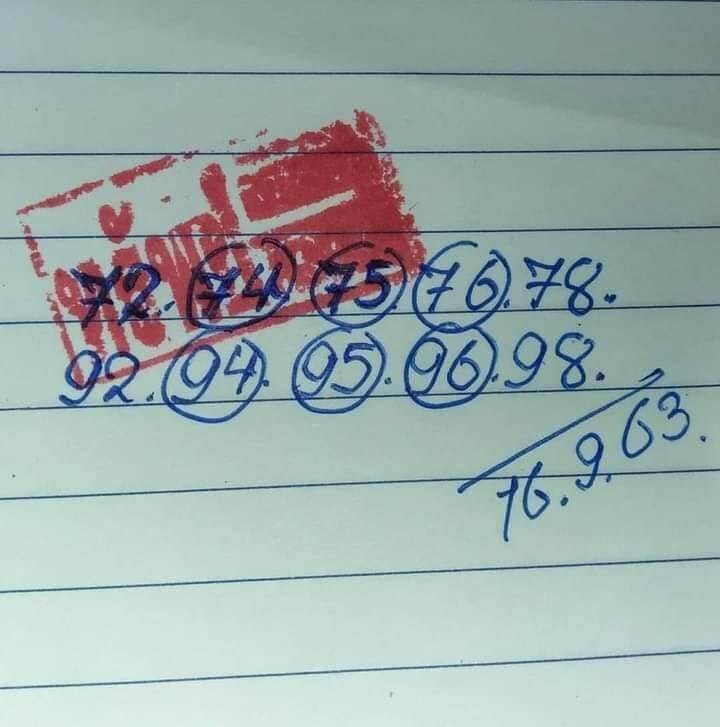 72. 74 75 76. 78.
92. 94. 95. 96. 98.
16.9.63.